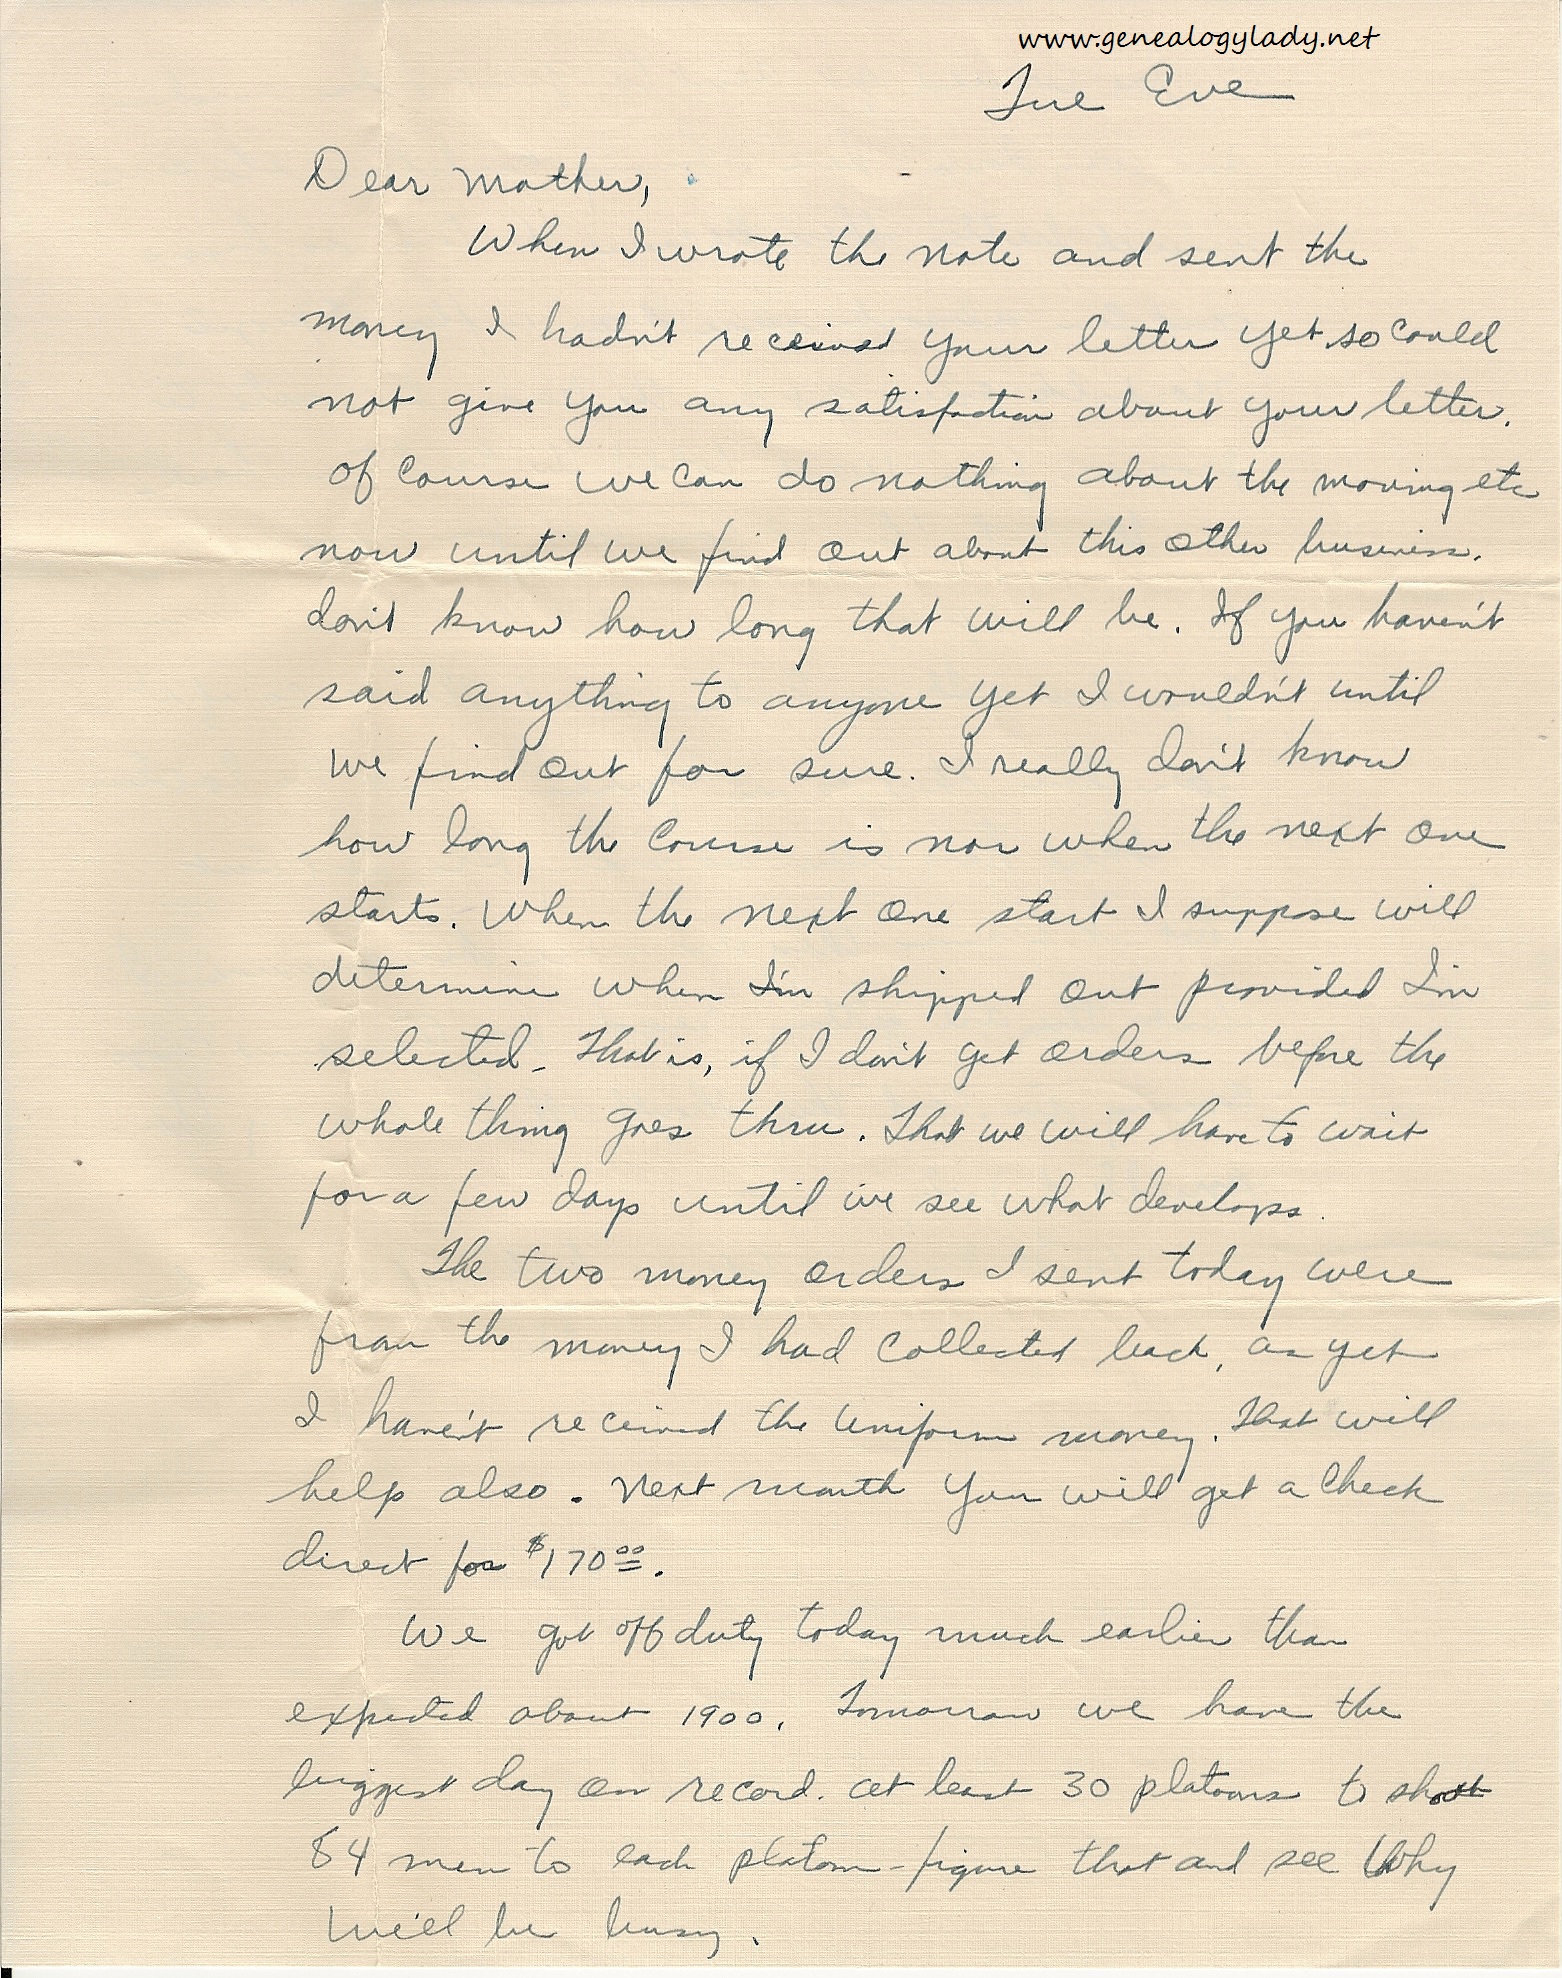 www.genealogylady.net
Tue Eve
Dear Mother,
When I wrote the note and sent the
money I hadn't received your letter yet so could
not give you any satisfaction about your letter.
Of course we can do nothing about the moving etc
now until we find out about this other business.
don't know how long that will be. If you haven't
said anything to anyone yet I wouldn't until
we find out for sure. I really don't know
how long the course is nor when the next one
starts. When the next one start I suppose will
determine when I'm shipped out provided I'm
selected - That is, if I don't get orders before the
whole thing goes thru. That we will have to wait
for a few days until we see what develops.
The two money orders I sent today were
from the money I had collected back, as yet
I haven't received the uniform money. That will
help also. Next month you will get a check
direct for $170.00.
We got off duty today much earlier than
expected about 1900. Tomorrow we have the
biggest day on record. At least 30 platoons to shoot
84 men to each platoon - figure that and see why
we'll be busy.